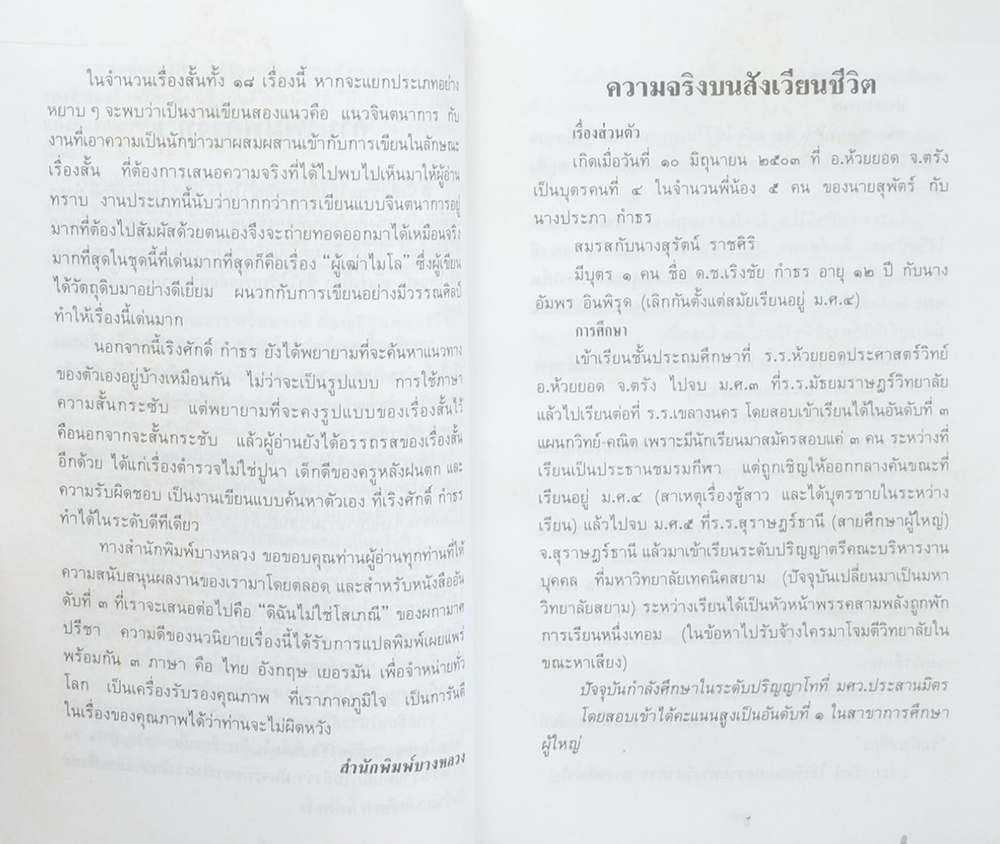 ในจำนวนเรื่องสั้นทั้ง ๑๘ เรื่องนี้ หากจะแยกประเภทอย่าง
หยาบ ๆ จะพบว่าเป็นงานเขียนสองแนวคือ แนวจินตนาการ กับ
งานที่เอาความเป็นนักข่าวมาผสมผสานเข้ากับการเขียนในลักษณะ
เรื่องสั้น ที่ต้องการเสนอความจริงที่ได้ไปพบไปเห็นมาให้ผู้อ่าน
ทราบ งานประเภทนี้นับว่ายากกว่าการเขียนแบบจินตนาการอยู่
มากที่ต้องไปสัมผัสด้วยตนเองจึงจะถ่ายทอดออกมาได้เหมือนจริง
มากที่สุดในชุดนี้ที่เด่นมากที่สุดก็คือเรื่อง “ผู้เฒ่าไมโล” ซึ่งผู้เขียน
ได้วัตถุดิบมาอย่างดีเยี่ยม ผนวกกับการเขียนอย่างมีวรรณศิลป์
ทำให้เรื่องนี้เด่นมาก
นอกจากนี้เริงศักดิ์ กำธร ยังได้พยายามที่จะค้นหาแนวทาง
ของตัวเองอยู่บ้างเหมือนกัน ไม่ว่าจะเป็นรูปแบบ การใช้ภาษา
ความสั้นกระชับ แต่พยายามที่จะคงรูปแบบของเรื่องสั้นไว้
คือนอกจากจะสั้นกระชับ แล้วผู้อ่านยังได้อรรถรสของเรื่องสั้น
อีกด้วย ได้แก่เรื่องตำรวจไม่ใช่ปูนา เด็กดีของครูหลังฝนตก และ
ความรับผิดชอบ เป็นงานเขียนแบบค้นหาตัวเอง ที่เริงศักดิ์ กำธร
ทำได้ในระดับดีทีเดียว
ทางสำนักพิมพ์บางหลวง ขอขอบคุณท่านผู้อ่านทุกท่านที่ให้
ความสนับสนุนผลงานของเรามาโดยตลอด และสำหรับหนังสืออัน
ดับที่ ๓ ที่เราจะเสนอต่อไปคือ “ดิฉันไม่ใช่โสเภณี” ของผกามาศ
ปรีชา ความดีของนวนิยายเรื่องนี้ได้รับการแปลพิมพ์เผยแพร่
พร้อมกัน ๓ ภาษา คือ ไทย อังกฤษ เยอรมัน เพื่อจำหน่ายทั่ว
โลก เป็นเครื่องรับรองคุณภาพ ที่เราภาคภูมิใจ เป็นการันตี
ในเรื่องของคุณภาพได้ว่าท่านจะไม่ผิดหวัง
สำนักพิมพ์บางหลวง
ความจริงบนสังเวียนชีวิต
เรื่องส่วนตัว
เกิดเมื่อวันที่ ๑๐ มิถุนายน ๒๕๐๓ ที่ อ.ห้วยยอด จ.ตรัง
เป็นบุตรคนที่ ๔ ในจำนวนพี่น้อง ๕ คน ของนายสุพัตร์ กับ
นางประภา กำธร
สมรสกับนางสุรัตน์ ราชศิริ
มีบุตร ๑ คน ชื่อ ด.ช.เริงชัย กำธร อายุ ๑๒ ปี กับนาง
อัมพร อินพิรุด (เลิกกันตั้งแต่สมัยเรียนอยู่ ม.ศ.๔)
การศึกษา
เข้าเรียนชั้นประถมศึกษาที่ ร.ร.ห้วยยอดประศาสตร์วิทย์
อ.ห้วยยอด จ.ตรัง ไปจบ ม.ศ.๓ ที่ร.ร.มัธยมราษฎร์วิทยาลัย
แล้วไปเรียนต่อที่ ร.ร.เขลางนคร โดยสอบเข้าเรียนได้ในอันดับที่ ๓
แผนกวิทย์-คณิต เพราะมีนักเรียนมาสมัครสอบแค่ ๓ คน ระหว่างที่
เรียนเป็นประธานชมรมกีฬา แต่ถูกเชิญให้ออกกลางคันขณะที่
เรียนอยู่ ม.ศ.๔ (สาเหตุเรื่องชู้สาว และได้บุตรชายในระหว่าง
เรียน) แล้วไปจบ ม.ศ.๕ ที่ร.ร.สุราษฎร์ธานี (สายศึกษาผู้ใหญ่)
จ.สุราษฎร์ธานี แล้วมาเข้าเรียนระดับปริญญาตรีคณะบริหารงาน
บุคคล ที่มหาวิทยาลัยเทคนิคสยาม (ปัจจุบันเปลี่ยนมาเป็นมหา
วิทยาลัยสยาม) ระหว่างเรียนได้เป็นหัวหน้าพรรคสามพลังถูกพัก
การเรียนหนึ่งเทอม (ในข้อหาไปรับจ้างใครมาโจมตีวิทยาลัยใน
ขณะหาเสียง)
ปัจจุบันกำลังศึกษาในระดับปริญญาโทที่ มศว.ประสานมิตร
โดยสอบเข้าได้คะแนนสูงเป็นอันดับที่ ๑ ในสาขาการศึกษา
ผู้ใหญ่